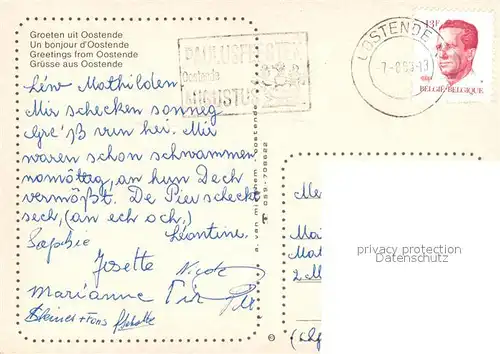 Groeten uit Oostende
Un bonjour d'Oostende
Greetings from Oostende
Grüsse aus Oostende
PAULUSFEESTEN
Oostende
AUGUSTUS
OOSTENDE
13F
BELGIË-BELGIQUE
Léiw Mathilden,
Mir schecken sonneg
Gre'ß vun hei. Mir
waren schon schwammen
nomëttag, an hun Dech
vermëßt. De Pier scheckt
sech, (an ech och.)
Sophie Léontine.
Josette Nicole
Marianne Pir
+ Fons
a. van mieghem b oostende
059-708622
Me
Ma
Mat
(alg
privacy protection
ansichtskarten